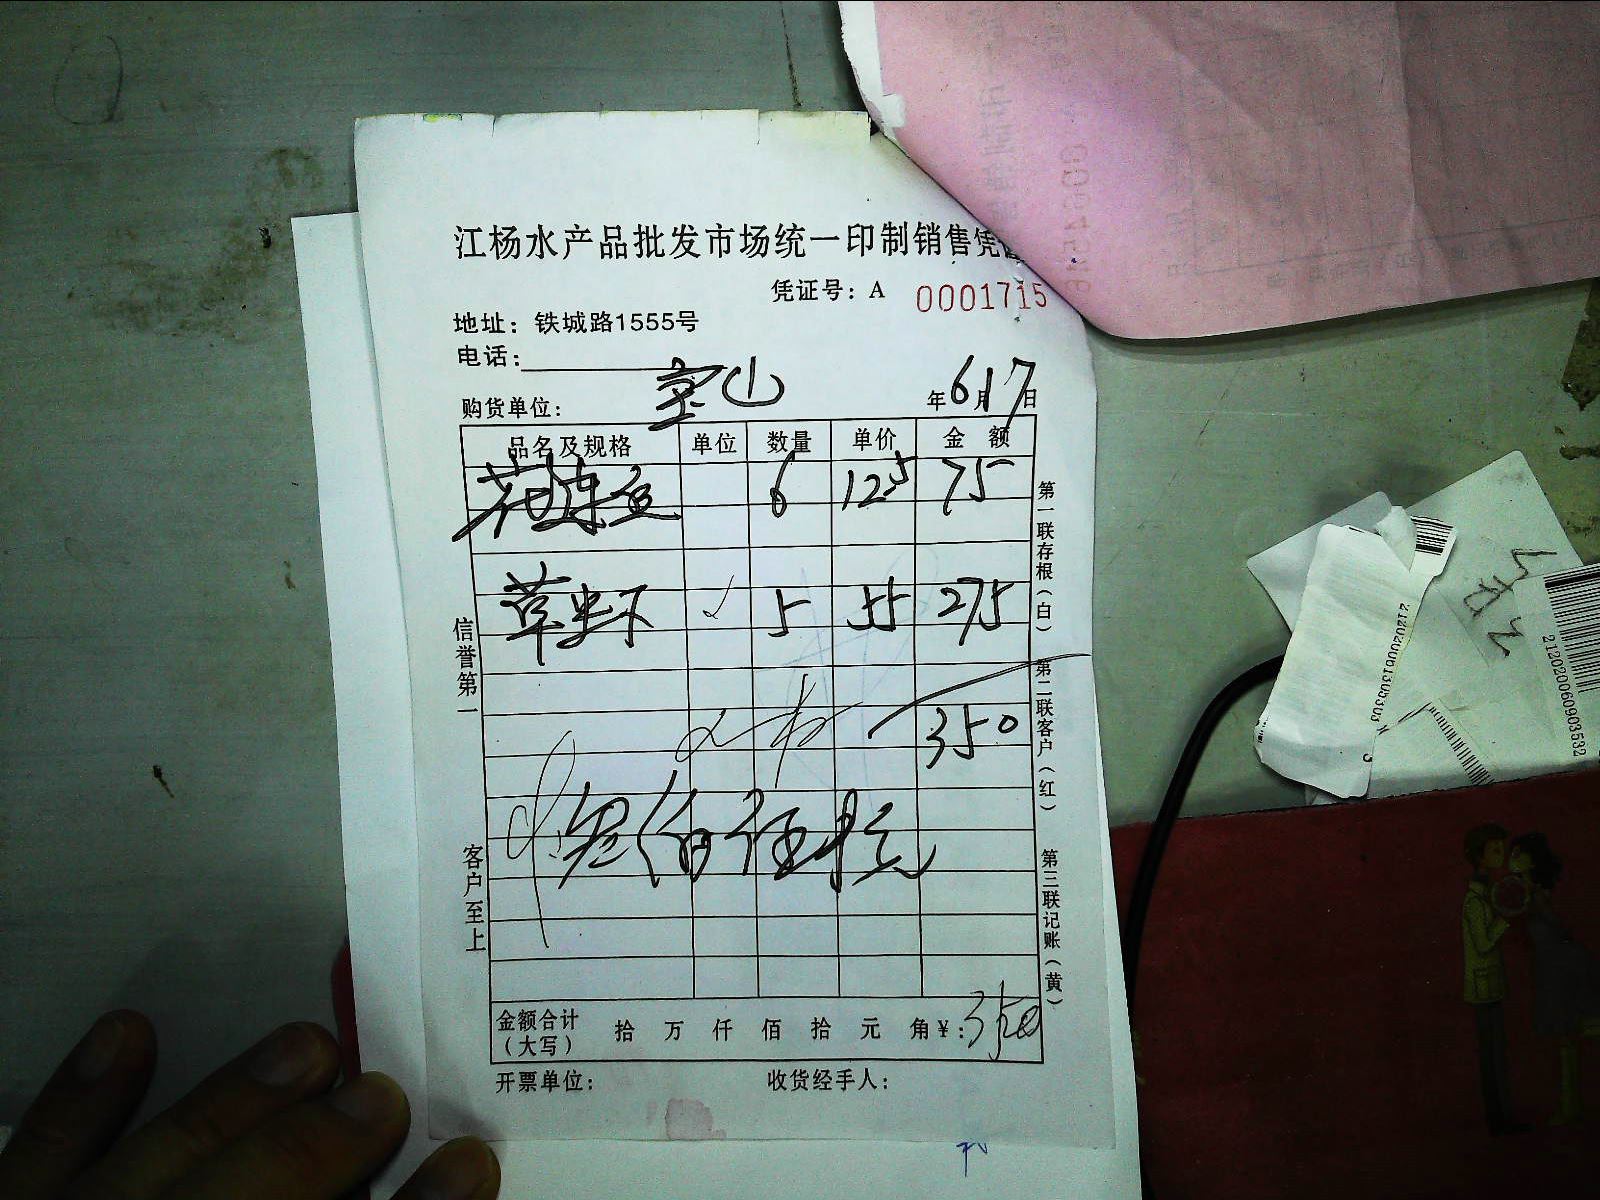 江杨水产品批发市场统一印制销售凭证
凭证号：A 0001715
地址：铁城路1555号
电话：
购货单位： 宝山 年6月17日
品名及规格 单位 数量 单价 金额
花连鱼 6 12.5 75
草虾 5 55 275
350
叁佰伍拾元
金额合计（大写） 拾 万 仟 佰 拾 元 角 ¥：350
开票单位： 收货经手人：
信誉第一
客户至上
第一联存根（白）
第二联客户（红）
第三联记账（黄）
212020060903532